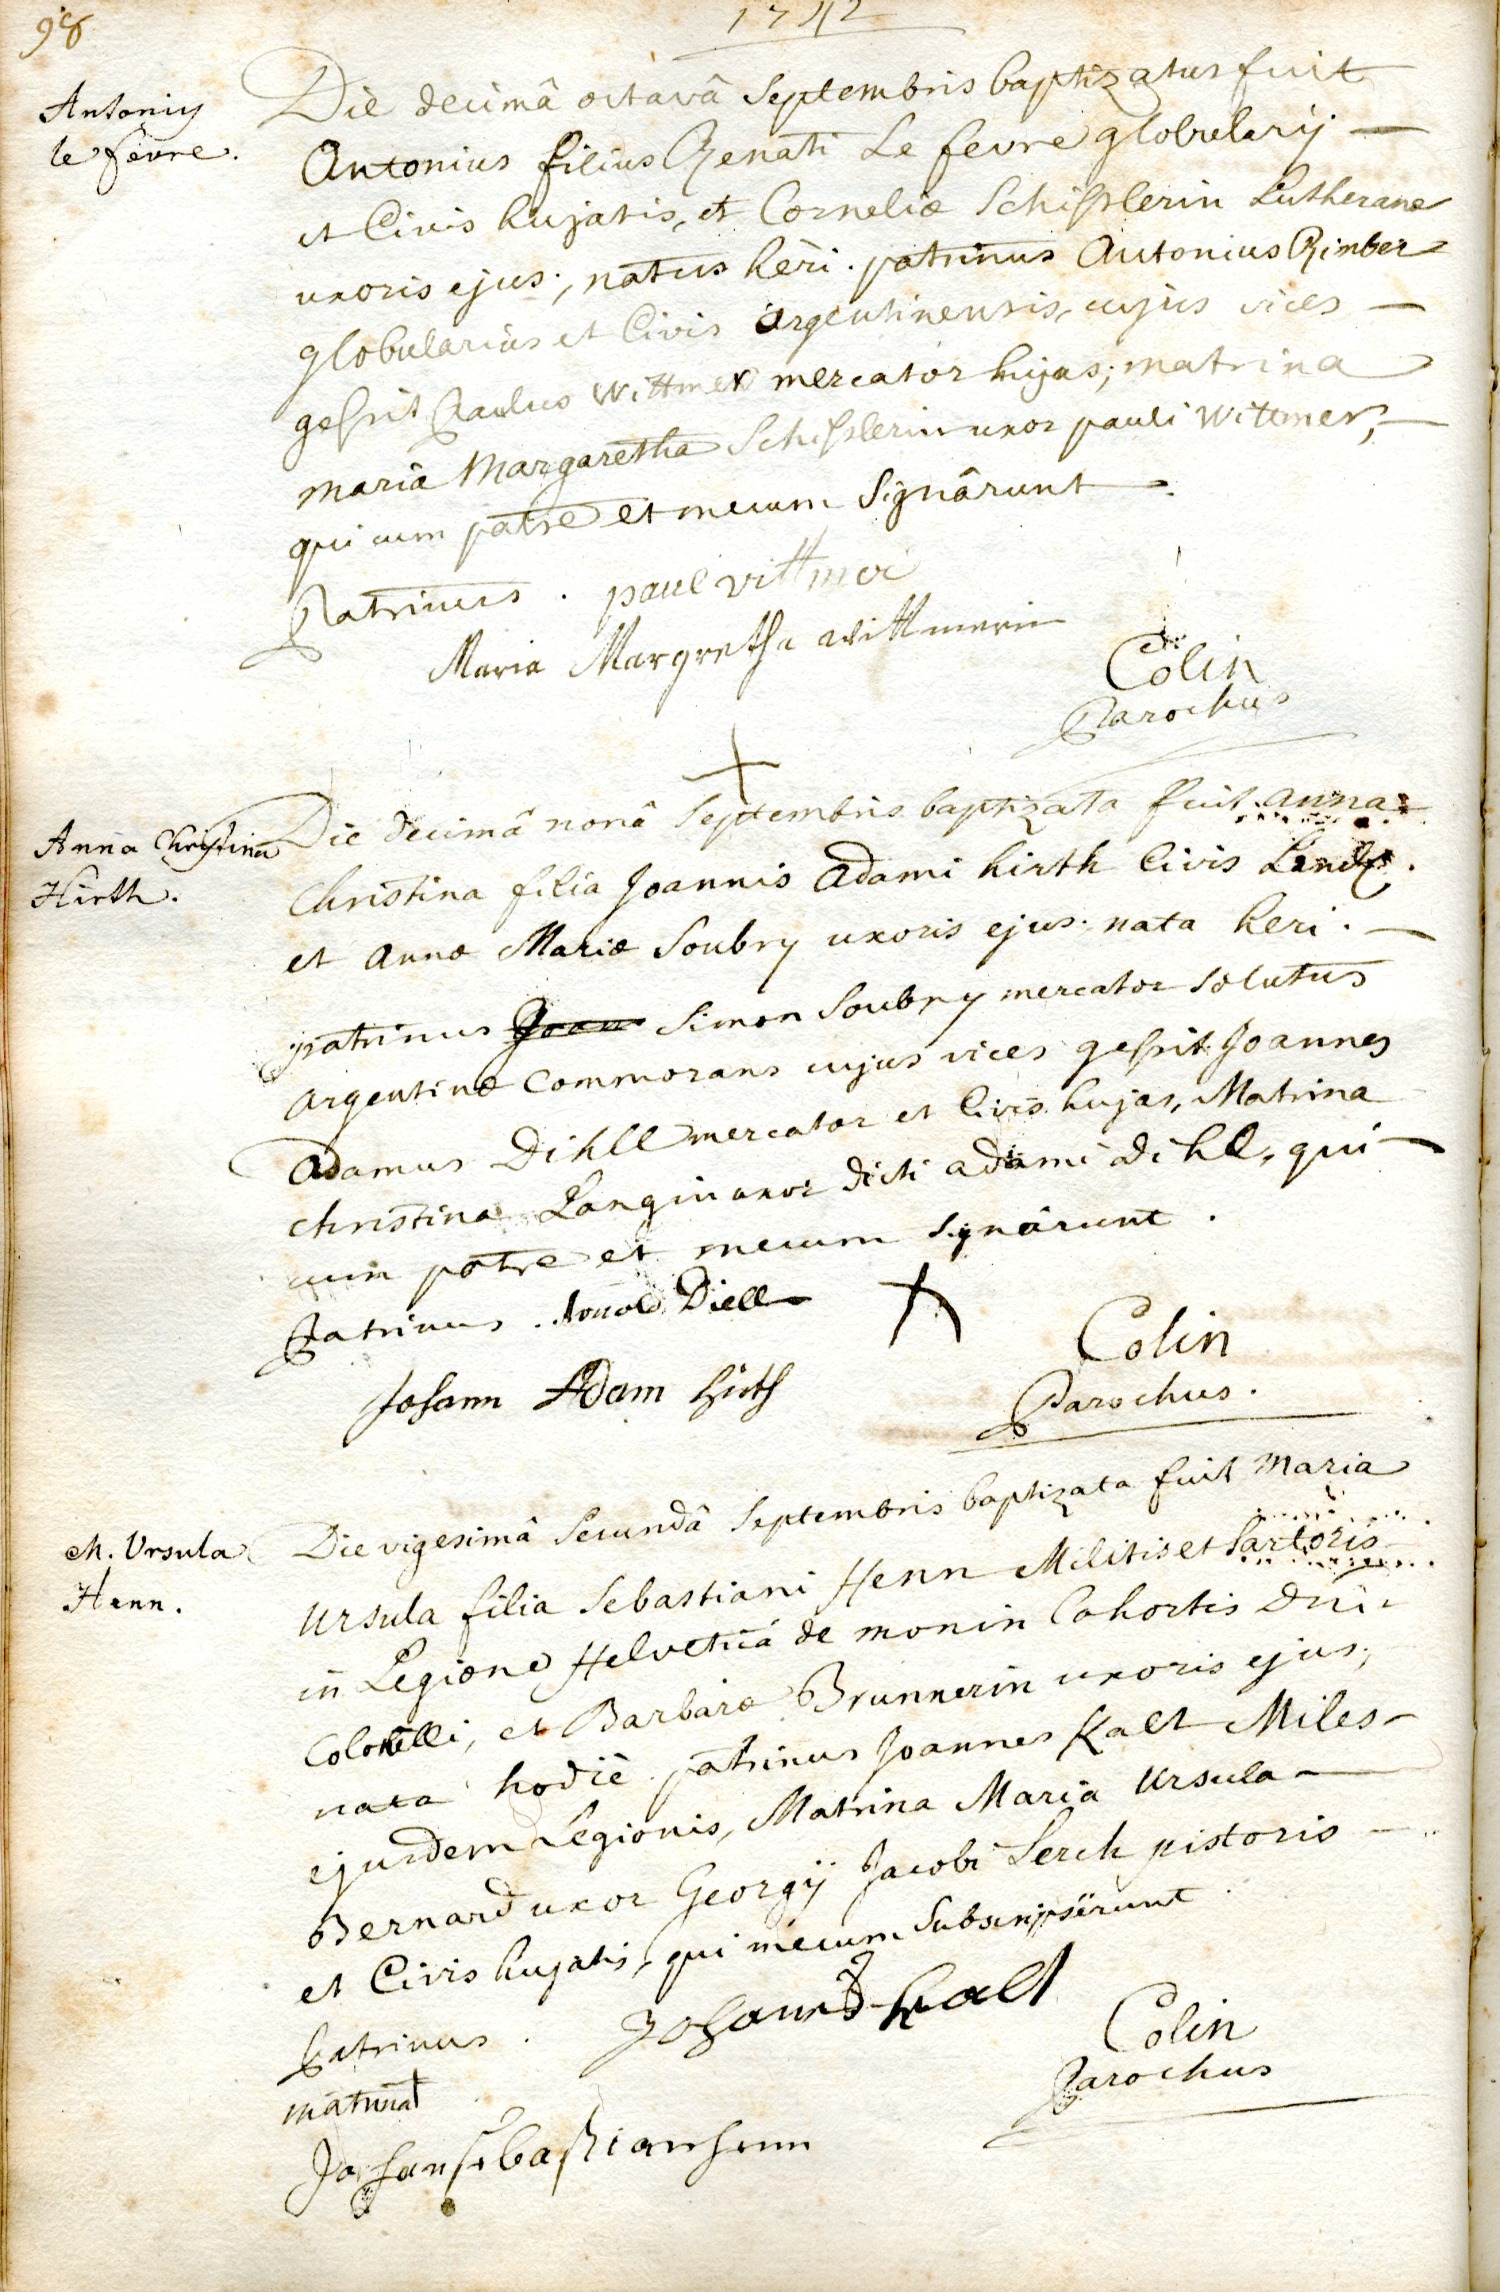 98
1742
Antoniy
le fevre.
Die decimâ octavâ Septembris baptizatus fuit
Antonius filius Renati Le fevre globularij —
et Civis hujatis, et Corneliæ Schisslerin Lutheranæ
uxoris ejus; natus heri. patrinus Antonius Rimber
globularius et Civis Argentinensis, cujus vices —
gessit Paulus Wittmer mercator hujas; matrina
maria Margaretha Schisslerin uxor pauli Wittmer, —
qui cum patre et mecum Signârunt
Patrinus. paul vittmer
Maria Margretha wittmerin
Colin
Parochus
Anna Christina
Hirth.
Die decimâ nonâ Septembris baptizata fuit anna
Christina filia Joannis Adami hirth Civis
et Annæ Mariæ Soubry uxoris ejus. nata heri. —
patrinus Simon Soubry mercator solutus
Argentinæ Commorans cujus vices gessit Joannes
Adamus Dihll mercator et Civis hujas, Matrina
Christina Langin uxor dicti adami dihl, qui —
cum patre et mecum signârunt.
Patrinus. Arnold Diell
Johann Adam hirth
Colin
Parochus.
M. Ursula
Henn.
Die vigesimâ Secundâ Septembris baptizata fuit Maria
Ursula filia Sebastiani Henn Militis et Sartoris
in Legione Helveticâ de monin Cohortis Dni
Colonelli, et Barbaræ Brunnerin uxoris ejus;
nata hodiè. patrinus Joannes Kalt Miles
ejusdem Legionis, Matrina Maria Ursula —
Bernard uxor Georgij Jacobi Lerch pistoris —
et Civis hujatis, qui mecum Subscripserunt
patrinus. Johannes Kalt
matrina
Johan sebastian henn
Colin
Parochus